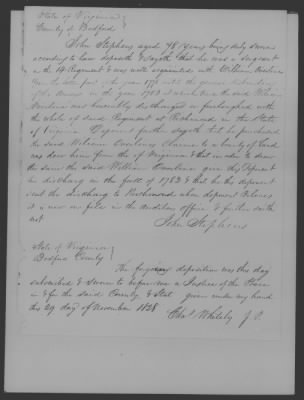 State of Virginia
County of Bedford
John Stephens aged 78 years being duly sworn
according to law deposeth & sayeth that he was a sergeant
in the 14 Regiment & was well acquainted with William
from the late part of the year 1776 until the general disbanding
of the Armies in the year 1783 at which time the said William
was honorably discharged or furloughed with
the whole of said Regiment at Richmond in the State
of Virginia Deponent further sayeth that he purchased
the said William Claim to a bounty of Land
was done from the of Virginia & that in order to draw
the same the said William gave this Deponent
his discharge in the fall of 1783 & that he this deponent
sent the discharge to Richmond where deponent believes
it is now on file in the Auditors office & further saith
not
John Stephens
State of Virginia
Bedford County
The foregoing deposition was this day
subscribed & sworn to before me a Justice of the Peace
in & for the said County & State given under my hand
this 29 day of November 1828
Chas Whitely J. P.